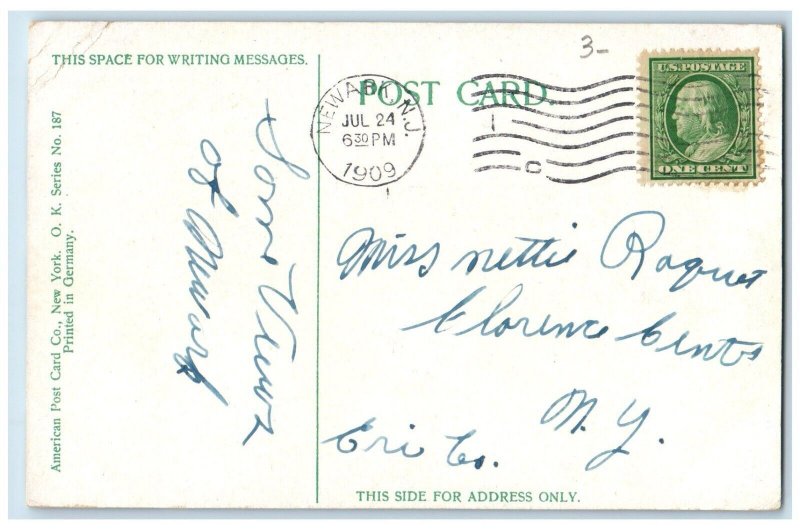 THIS SPACE FOR WRITING MESSAGES.
POST CARD.
3-
U.S. POSTAGE
ONE CENT
NEWARK, N.J.
JUL 24
6 30 PM
1909
1
C
American Post Card Co., New York. O. K. Series No. 187
Printed in Germany.
Some Views
of Newark
Miss Nettie Roquet
Clarence Cents
N. Y.
Eri Co.
THIS SIDE FOR ADDRESS ONLY.